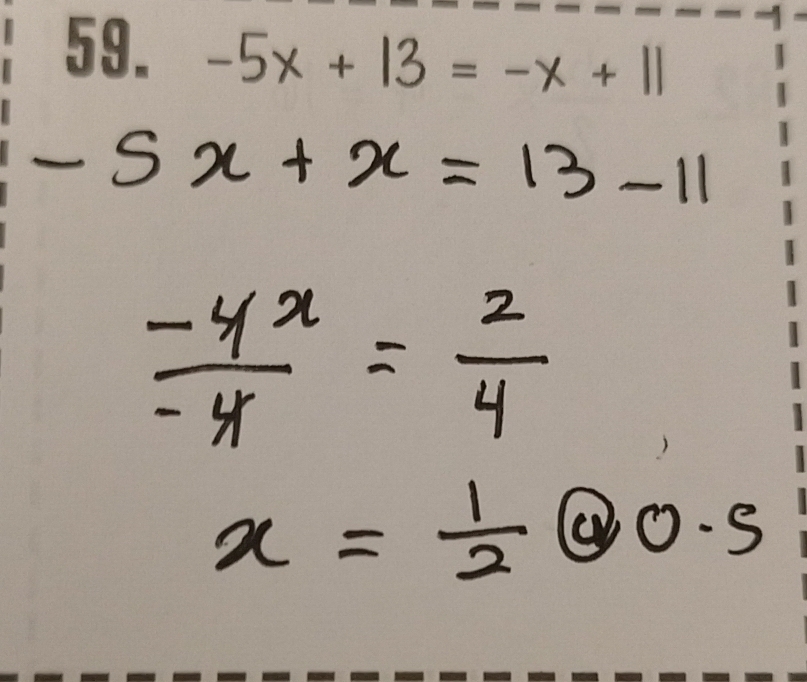 59. -5x + 13 = -x + 11
- 5x + x = 13 - 11
-4x/-4 = 2/4
x = 1/2 @ 0.5